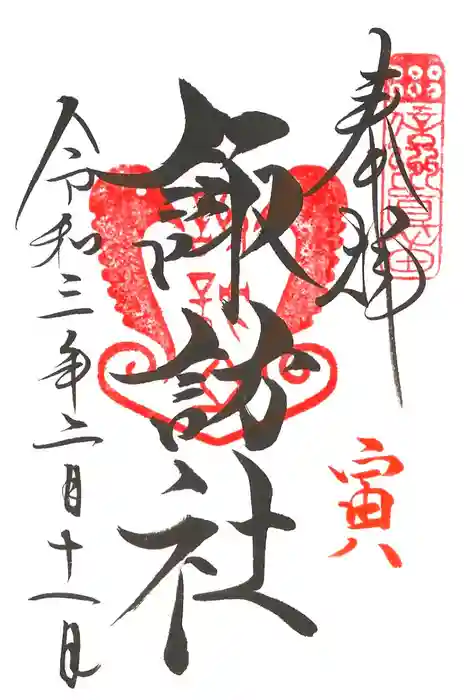 奉拝
寅
諏訪社
令和三年二月十一日